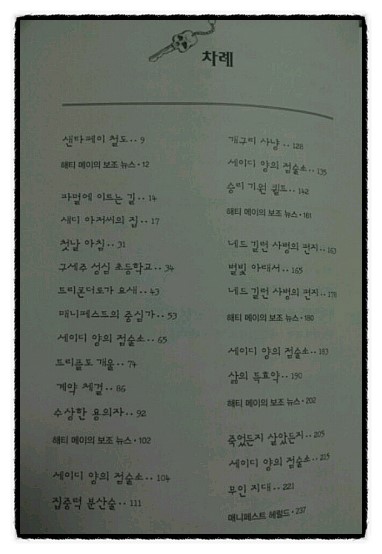 차례
샌타페이 철도‥9
해티 메이의 보조 뉴스·12
파멸에 이르는 길‥14
섀디 아저씨의 집‥17
첫날 아침‥31
구세주 성심 초등학교‥34
트리콘더로가 요새‥43
매니페스트의 중심가‥53
세이디 양의 점술소‥65
트리플 도 개울‥74
계약 체결‥86
수상한 용의자‥92
해티 메이의 보조 뉴스·102
세이디 양의 점술소‥104
집중력 분산술‥111
개구리 사냥‥128
세이디 양의 점술소‥135
승리 기원 퀼트‥142
해티 메이의 보조 뉴스·161
네드 길런 사병의 편지‥163
별빛 아래서‥165
네드 길런 사병의 편지‥178
해티 메이의 보조 뉴스·180
세이디 양의 점술소‥183
삶의 특효약‥190
해티 메이의 보조 뉴스·202
죽었든지 살았든지‥205
세이디 양의 점술소‥215
무인 지대‥221
매니페스트 헤럴드·237